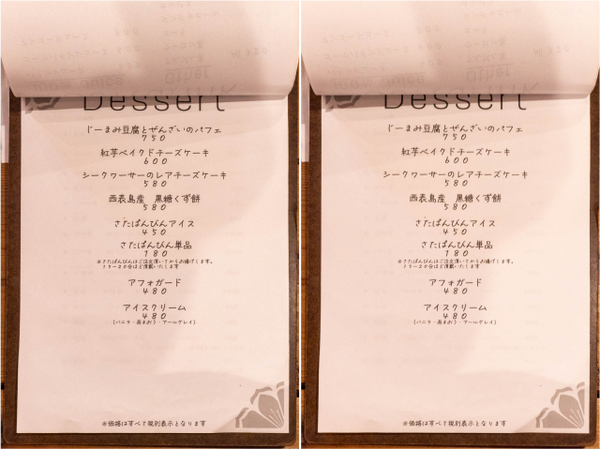 Dessert
じーまみ豆腐とぜんざいのパフェ
750
紅芋ベイクドチーズケーキ
600
シークヮーサーのレアチーズケーキ
580
西表島産 黒糖くず餅
580
さたぱんびんアイス
450
さたぱんびん単品
180
※さたぱんびんはご注文頂いてからお揚げします。
15〜20分ほど頂戴いたします
アフォガード
480
アイスクリーム
480
(バニラ・黒ま古う・アールグレイ)
※価格はすべて税別表示となります
Dessert
じーまみ豆腐とぜんざいのパフェ
750
紅芋ベイクドチーズケーキ
600
シークヮーサーのレアチーズケーキ
580
西表島産 黒糖くず餅
580
さたぱんびんアイス
450
さたぱんびん単品
180
※さたぱんびんはご注文頂いてからお揚げします。
15〜20分ほど頂戴いたします
アフォガード
480
アイスクリーム
480
※価格はすべて税別表示となります